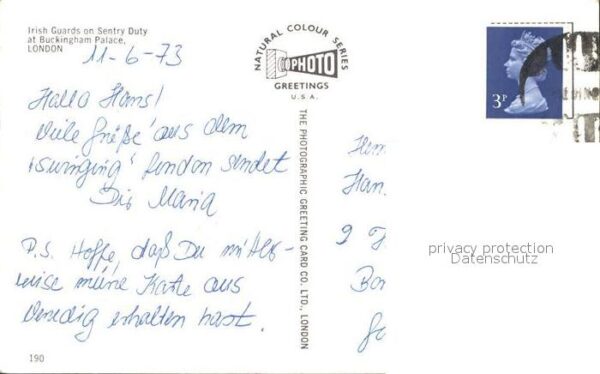 Irish Guards on Sentry Duty
at Buckingham Palace,
LONDON
11-6-73
Hallo Hans!
Viele Grüße aus dem
"swinging" London sendet
Dir Maria
P.S. Hoffe, daß Du
meine Karte aus
Venedig erhalten hast.
190
NATURAL COLOUR SERIES
PHOTO
GREETINGS
U.S.A.
THE PHOTOGRAPHIC GREETING CARD CO. LTD., LONDON
3P
Han
9
privacy protection
Datenschutz